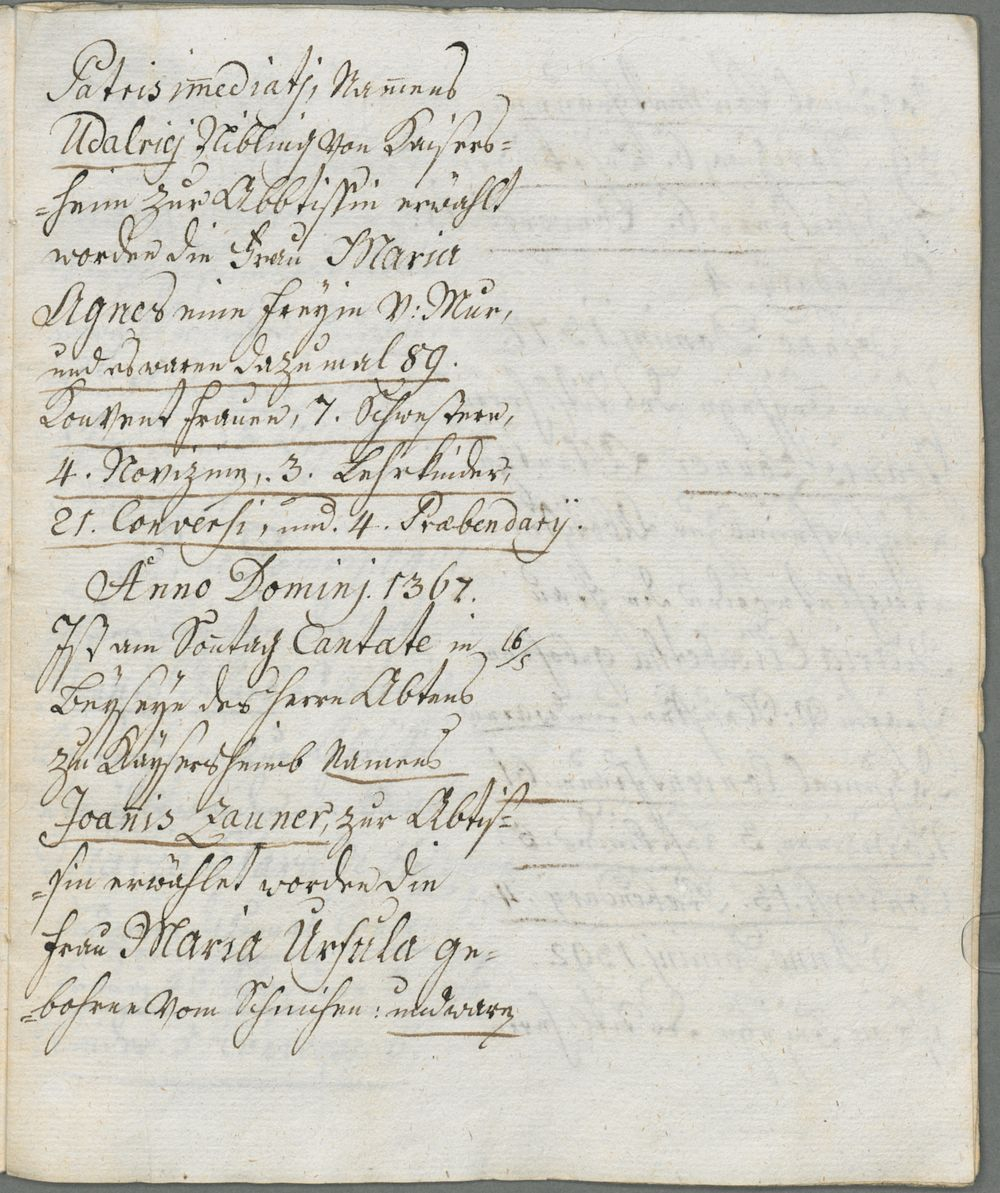 Patris im̄ediatj, Nam̄ens
Udalricj Nibling von Kaisers=
=heim zur Abbtissin erwählt
worden die Frau Maria
Agnes eine Freyin v: Mur,
und es waren dazumal 89.
Konvent Frauen, 7. Schwestern,
4. Novizinen, 3. Lehrkinder,
21. Conversi, und. 4. Præbendarÿ.
Anno Dominj. 1367.
Ist am Son̄tag Cantate in 16/5
Beyseyn des Herrn Abtens
zu Kaysersheimb Namens
Joan̄is Zauner, zur Abtis=
=sin erwählet worden die
Frau Maria Ursula ge=
=bohrne vom Schnichen: und waren